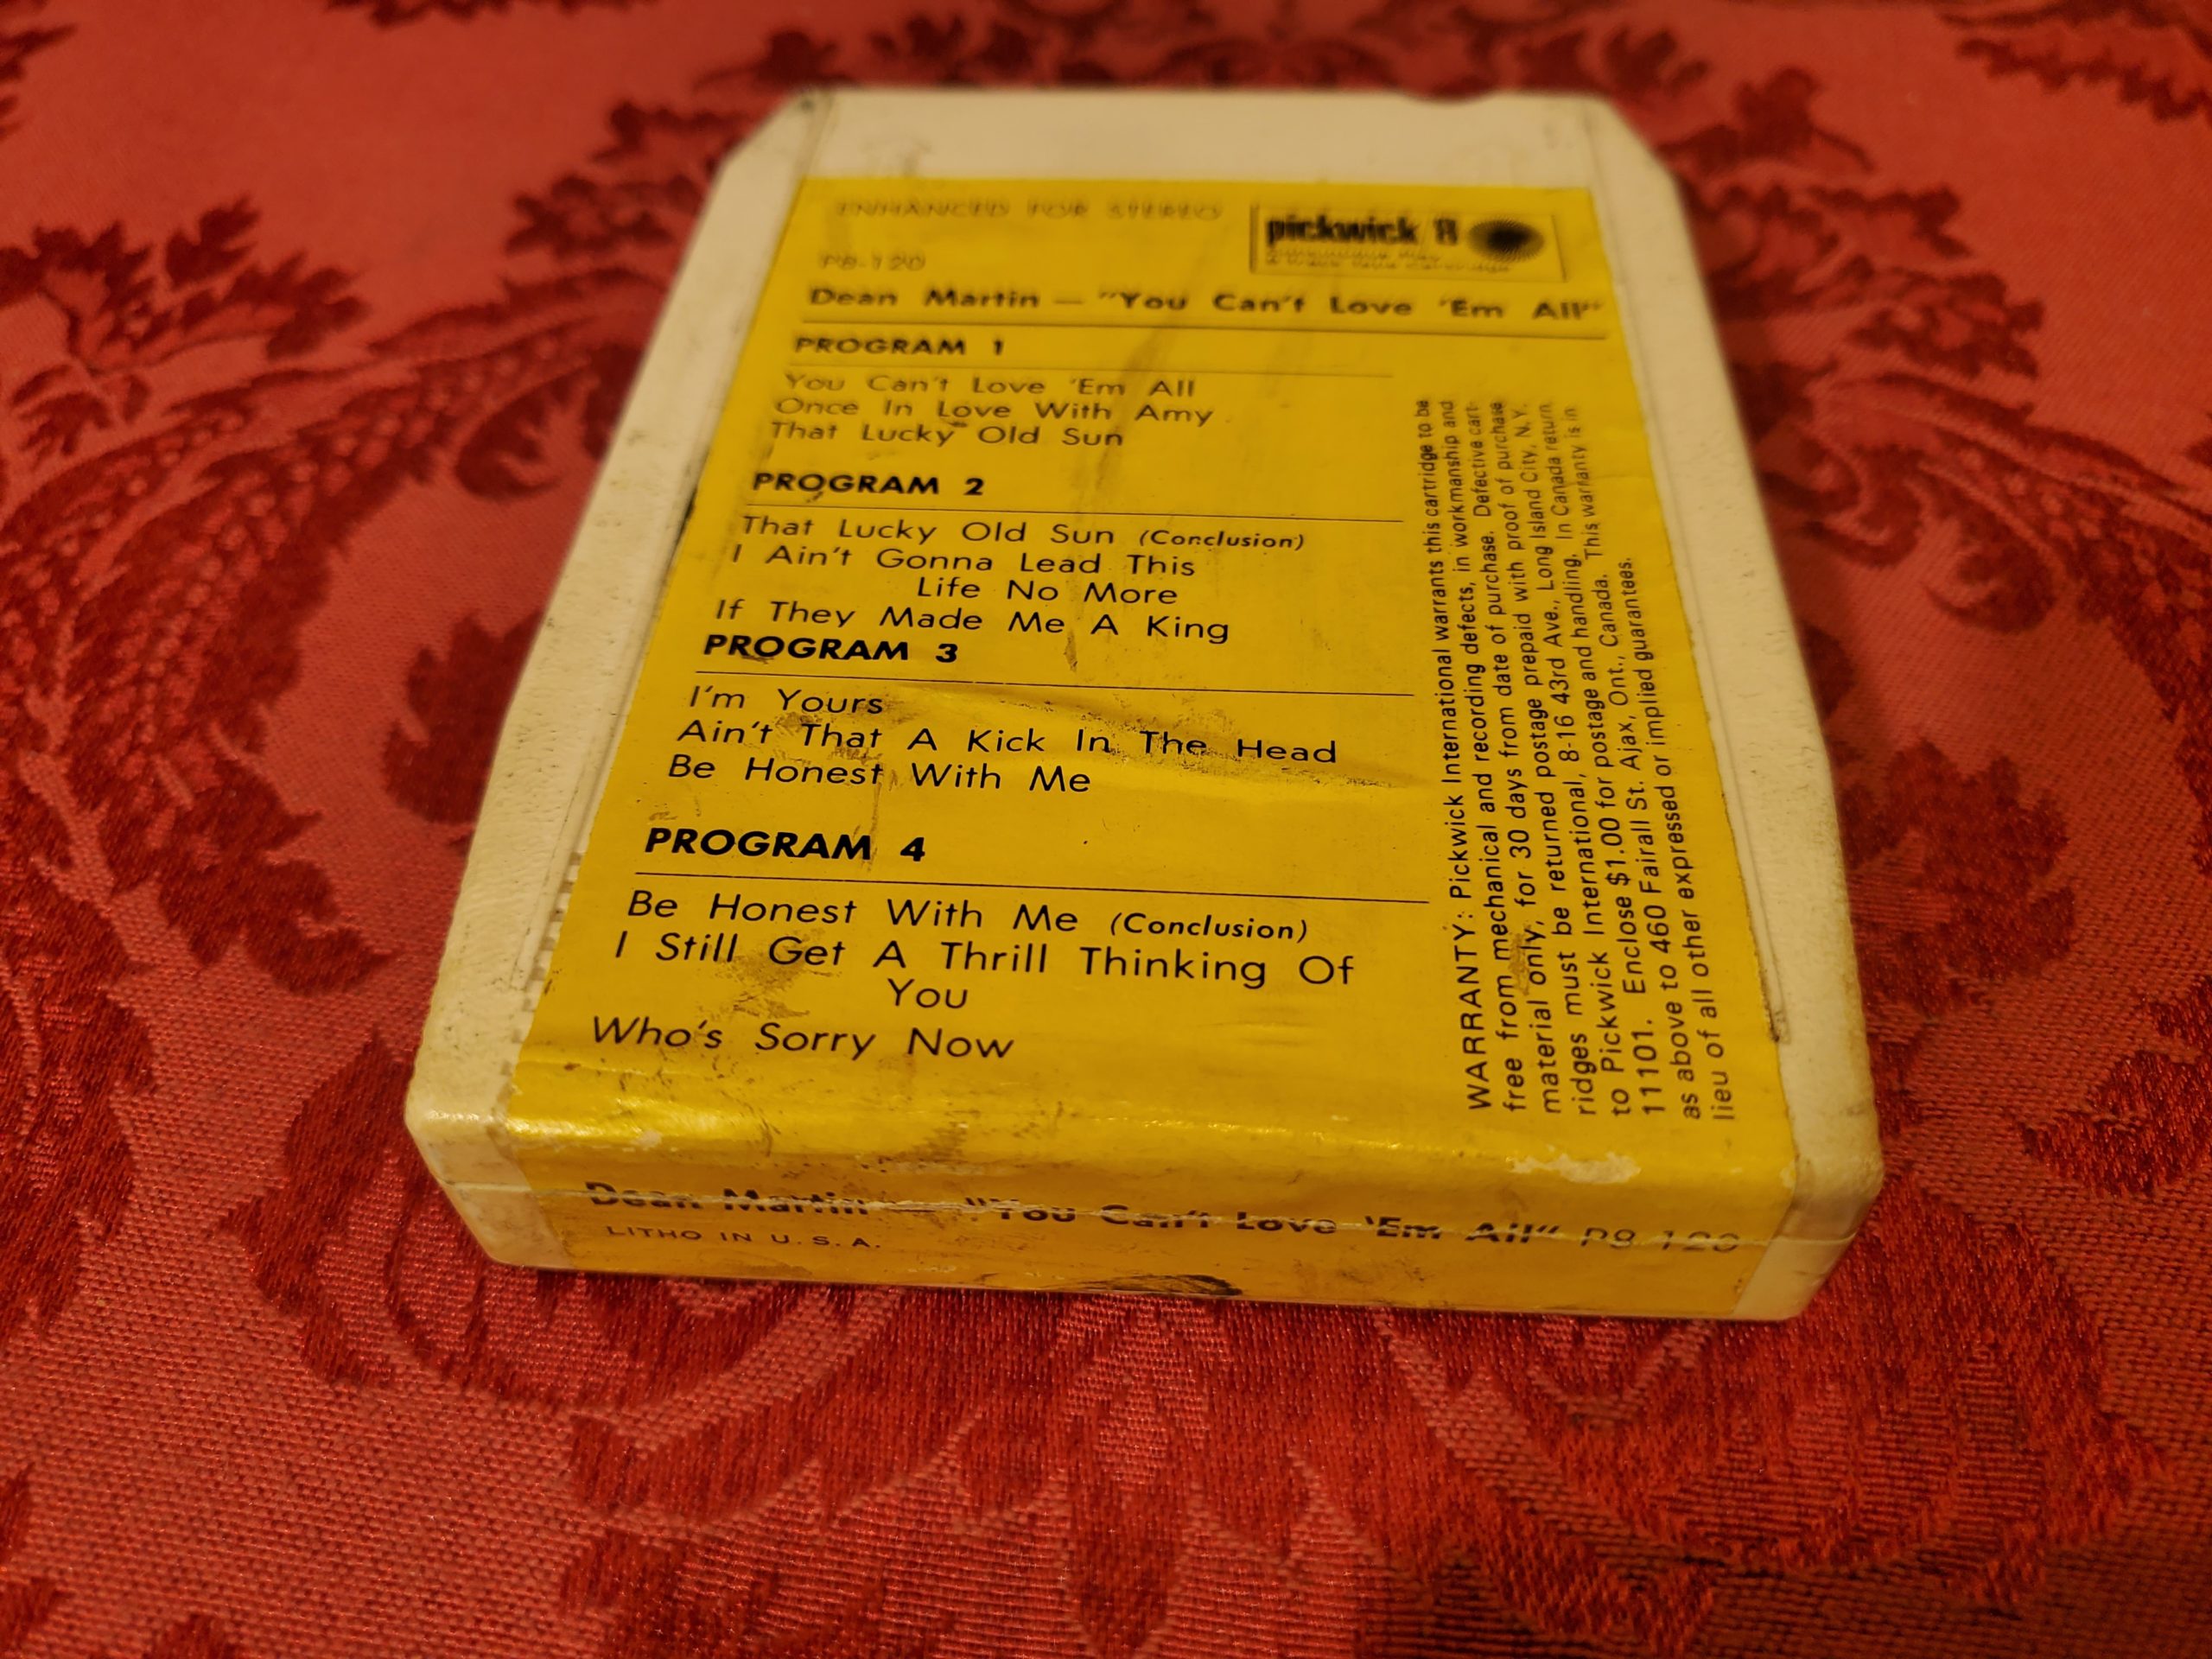 ENHANCED FOR STEREO
pickwick 8
P8-120
Dean Martin — "You Can't Love 'Em All"
PROGRAM 1
You Can't Love 'Em All
Once In Love With Amy
That Lucky Old Sun
PROGRAM 2
That Lucky Old Sun (Conclusion)
I Ain't Gonna Lead This
Life No More
If They Made Me A King
PROGRAM 3
I'm Yours
Ain't That A Kick In The Head
Be Honest With Me
PROGRAM 4
Be Honest With Me (Conclusion)
I Still Get A Thrill Thinking Of
You
Who's Sorry Now
WARRANTY: Pickwick International warrants this cartridge to be
free from mechanical and recording defects, in workmanship and
material only, for 30 days from date of purchase. Defective cart-
ridges must be returned postage prepaid with proof of purchase
to Pickwick International, 8-16 43rd Ave., Long Island City, N.Y.
11101. Enclose $1.00 for postage and handling. In Canada return
as above to 460 Fairall St. Ajax, Ont., Canada. This warranty is in
lieu of all other expressed or implied guarantees.
Dean Martin — "You Can't Love 'Em All" P8 120
LITHO IN U.S.A.